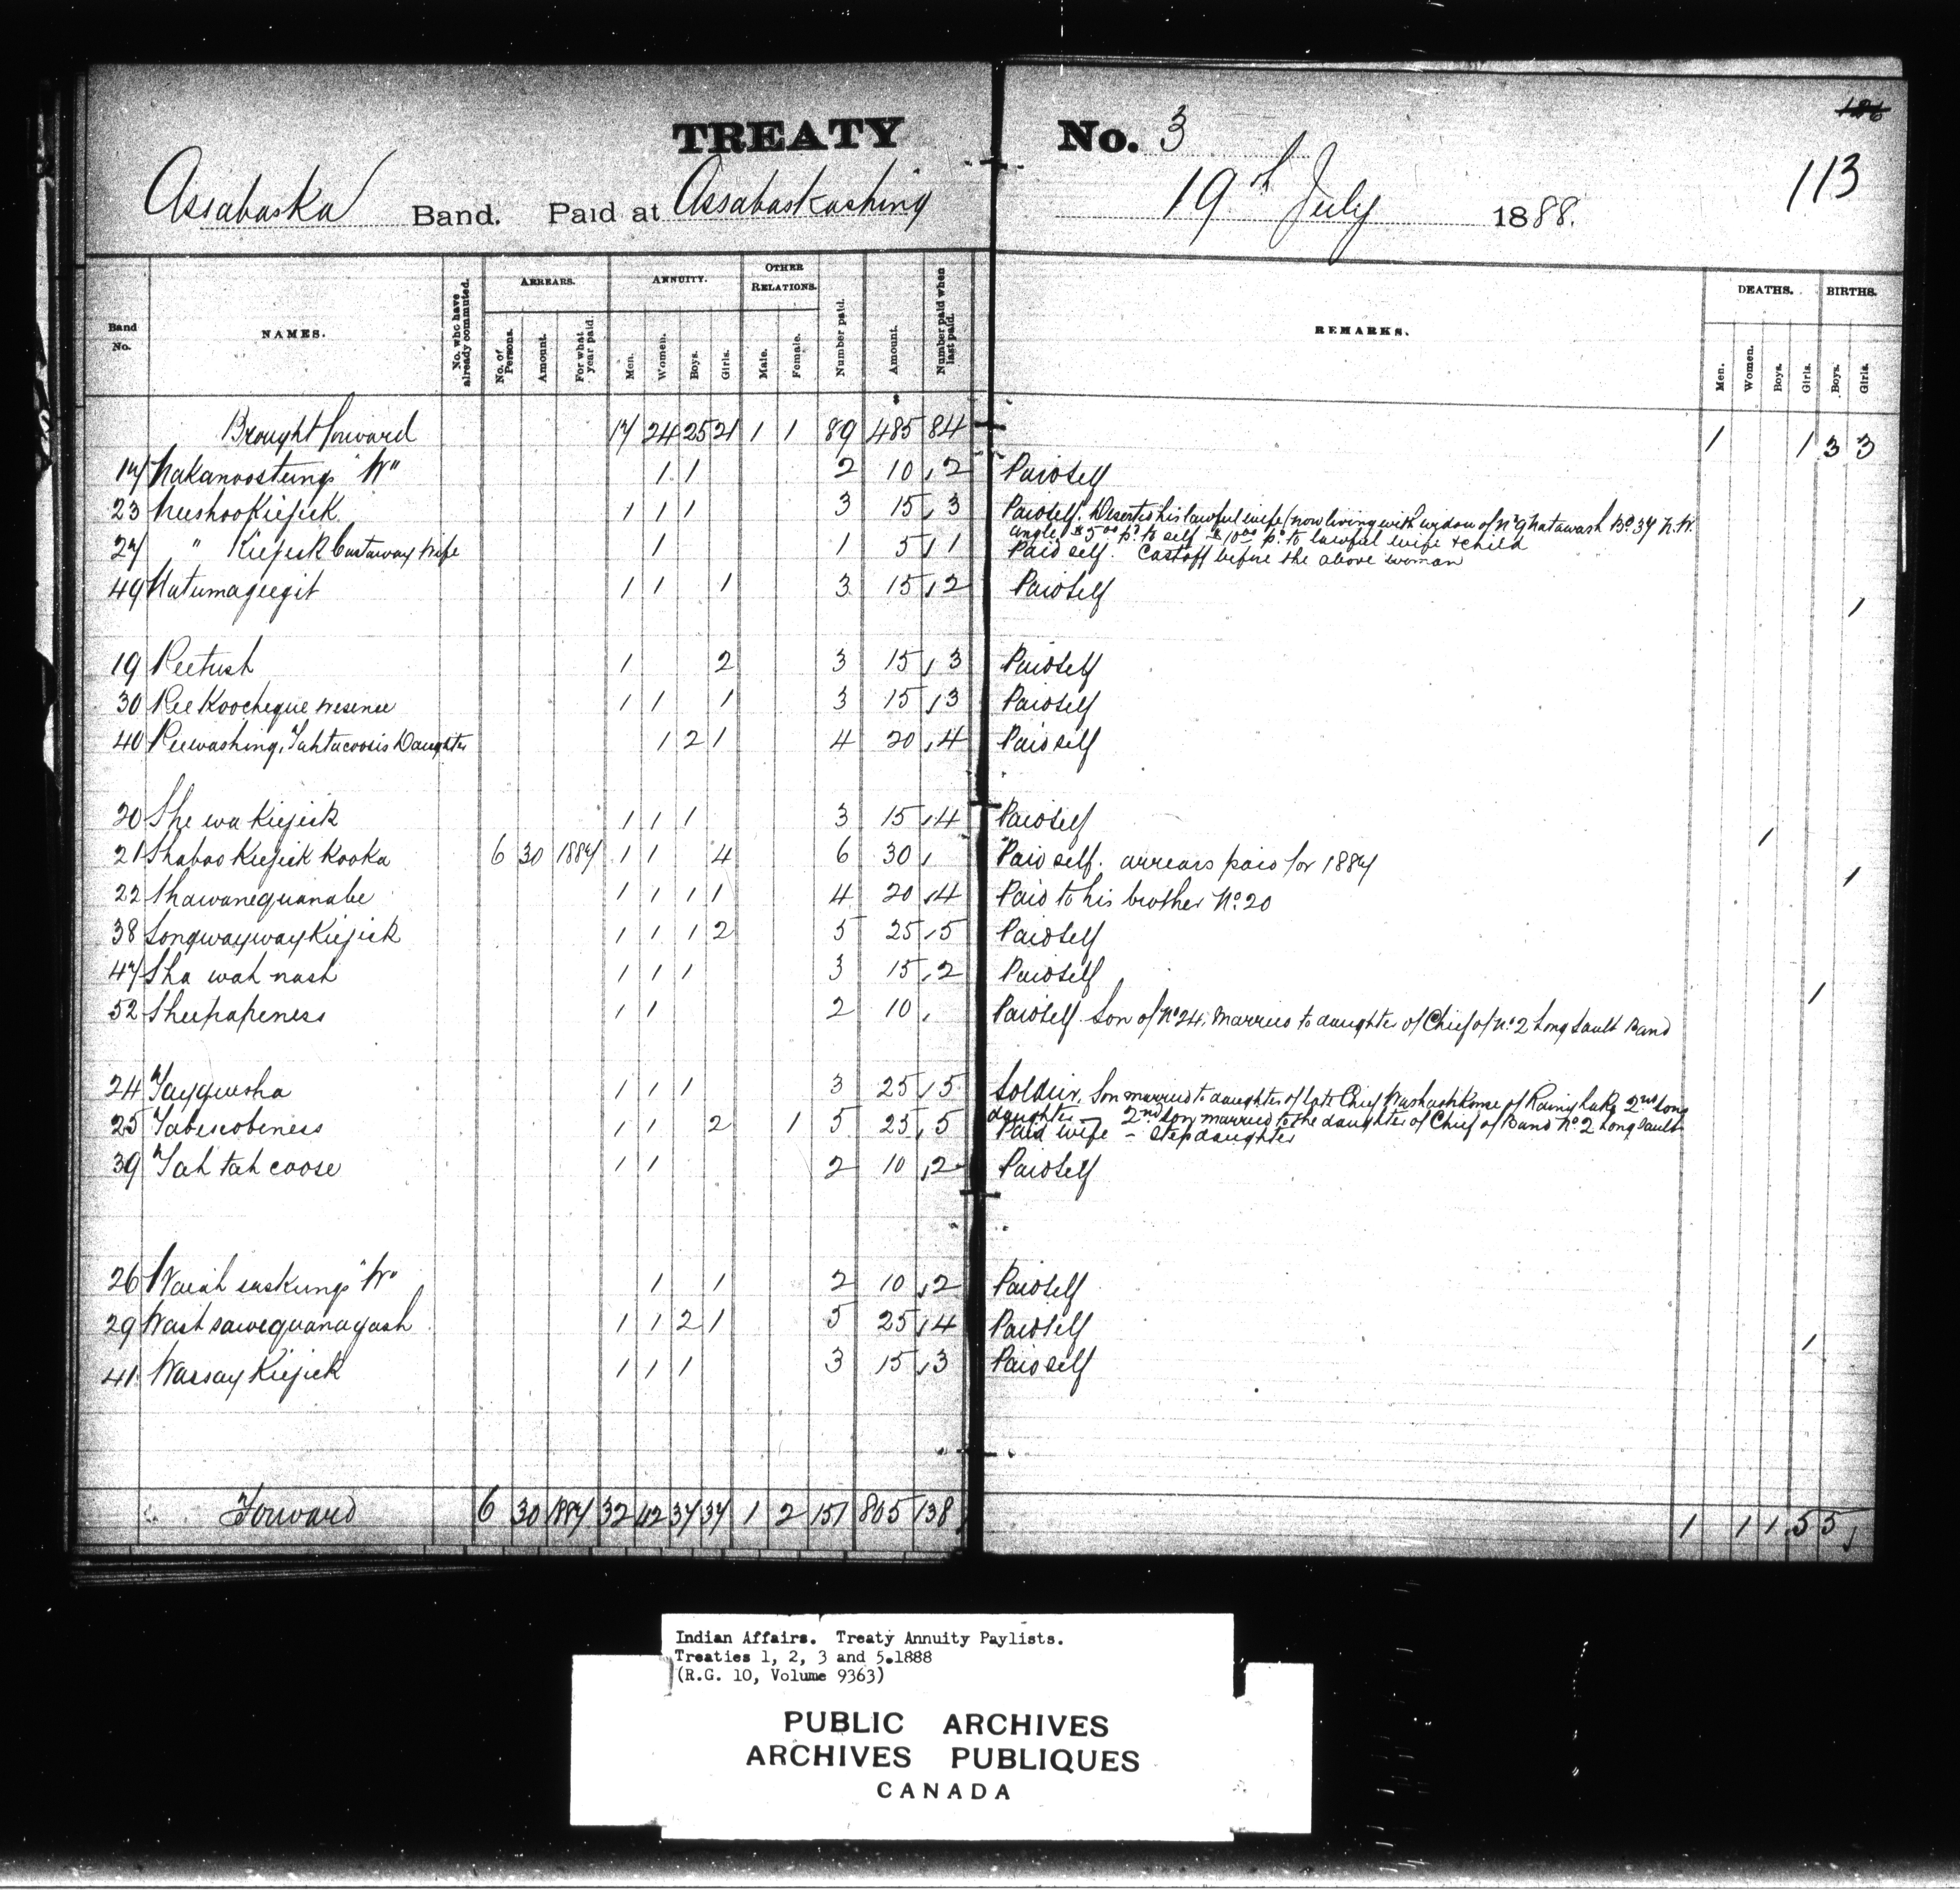 TREATY No. 3
126
113
Assabaska Band. Paid at Assabaskashing 19th July 1888.
Band No. NAMES. No. who have already commuted. ARREARS. No. of Persons. Amount. For what year paid. ANNUITY. Men. Women. Boys. Girls. OTHER RELATIONS. Male. Female. Number paid. Amount. Number paid when last paid. REMARKS. DEATHS. Men. Women. Boys. Girls. BIRTHS. Boys. Girls.
Brought forward 17 24 25 21 1 1 89 485 84 1 1 3 3
17 Nakanoostung "W" 1 1 2 10 2 Paid self
23 Neeshoo Kiejick 1 1 1 3 15 3 Paid self. Deserted his lawful wife / now living with widow of No 9 Natawash Bd. 37 N.W.
angle. $5.00 pd. to self $10.00 pd. to lawful wife & child
27 " Kiejick Castaway Wife 1 1 5 1 Paid self. Castoff before the above woman
49 Natumageegit 1 1 1 3 15 2 Paid self 1
19 Peetush 1 2 3 15 3 Paid self
30 Pee Koocheque wesenee 1 1 1 3 15 3 Paid self
40 Peewashing, Tahtacoosis Daughter 1 2 1 4 20 4 Paid self
20 She wa Kiejick 1 1 1 3 15 4 Paid self 1
21 Shaboo Kiejick Kooka 6 30 1887 1 1 4 6 30 Paid self. arrears paid for 1887 1
22 Shawanequanabe 1 1 1 1 4 20 4 Paid to his brother No. 20
38 Songwaywaykiejick 1 1 1 2 5 25 5 Paid self
47 Sha wah nash 1 1 1 3 15 2 Paid self 1
52 Sheepapeness 1 1 2 10 Paid self. Son of No 24. Married to daughter of Chief of No. 2 Long Sault Band
24 Tayquesha 1 1 1 3 25 5 Soldier. Son married to daughter of late Chief of Rainy Lake 2nd son
daughter - 2nd son married to the daughter of Chief of Band No. 2 Long Sault
25 Tabescobeness 1 1 2 1 5 25 5 Paid wife - Stepdaughter
39 Tah tah coose 1 1 2 10 2 Paid self
26 Waiah saskung "W" 1 1 2 10 2 Paid self
29 Wash sawequanayash 1 1 2 1 5 25 4 Paid self 1
41 Wassay Kiejick 1 1 1 3 15 3 Paid self
Forward 6 30 1887 32 42 37 37 1 2 151 805 138 1 1 1 5 5
Indian Affairs. Treaty Annuity Paylists.
Treaties 1, 2, 3 and 5.1888
(R.G. 10, Volume 9363)
PUBLIC ARCHIVES
ARCHIVES PUBLIQUES
CANADA